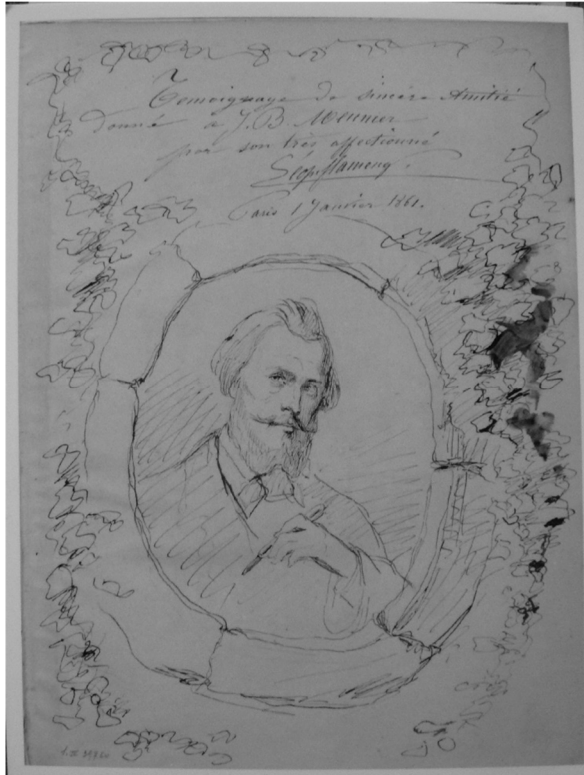 Temoignage de sincère Amitié
donné a J. B Meunier
par son très affectionné
Léop. flameng.
Paris 1 Janvier 1861.